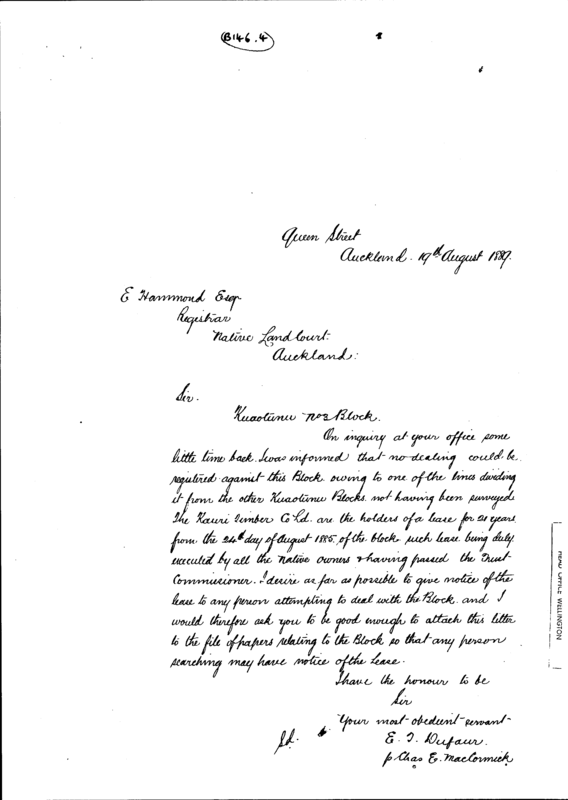 B146.4
Queen Street
Auckland. 19th August 1889.
E Hammond Esqr
Registrar
Native Land Court.
Auckland:
Sir.
Kuaotunu No 2 Block.
On inquiry at your office some
little time back. I was informed that no dealing could be
registered against this Block owing to one of the lines dividing
it from the other Kuaotunu Blocks not having been surveyed
The Kauri Timber Co Ld. are the holders of a lease for 21 years
from the 24th day of August 1885. of the block such lease being duly
executed by all the Native owners & having passed the Trust
Commissioner. I desire as far as possible to give notice of the
lease to any person attempting to deal with the Block. and I
would therefore ask you to be good enough to attach this letter
to the file of papers relating to the Block so that any person
searching may have notice of the Lease.
I have the honour to be
Sir
Your most obedient servant
E. T. Dufaur.
p Chas E. MacCormick
HEAD OFFICE WELLINGTON